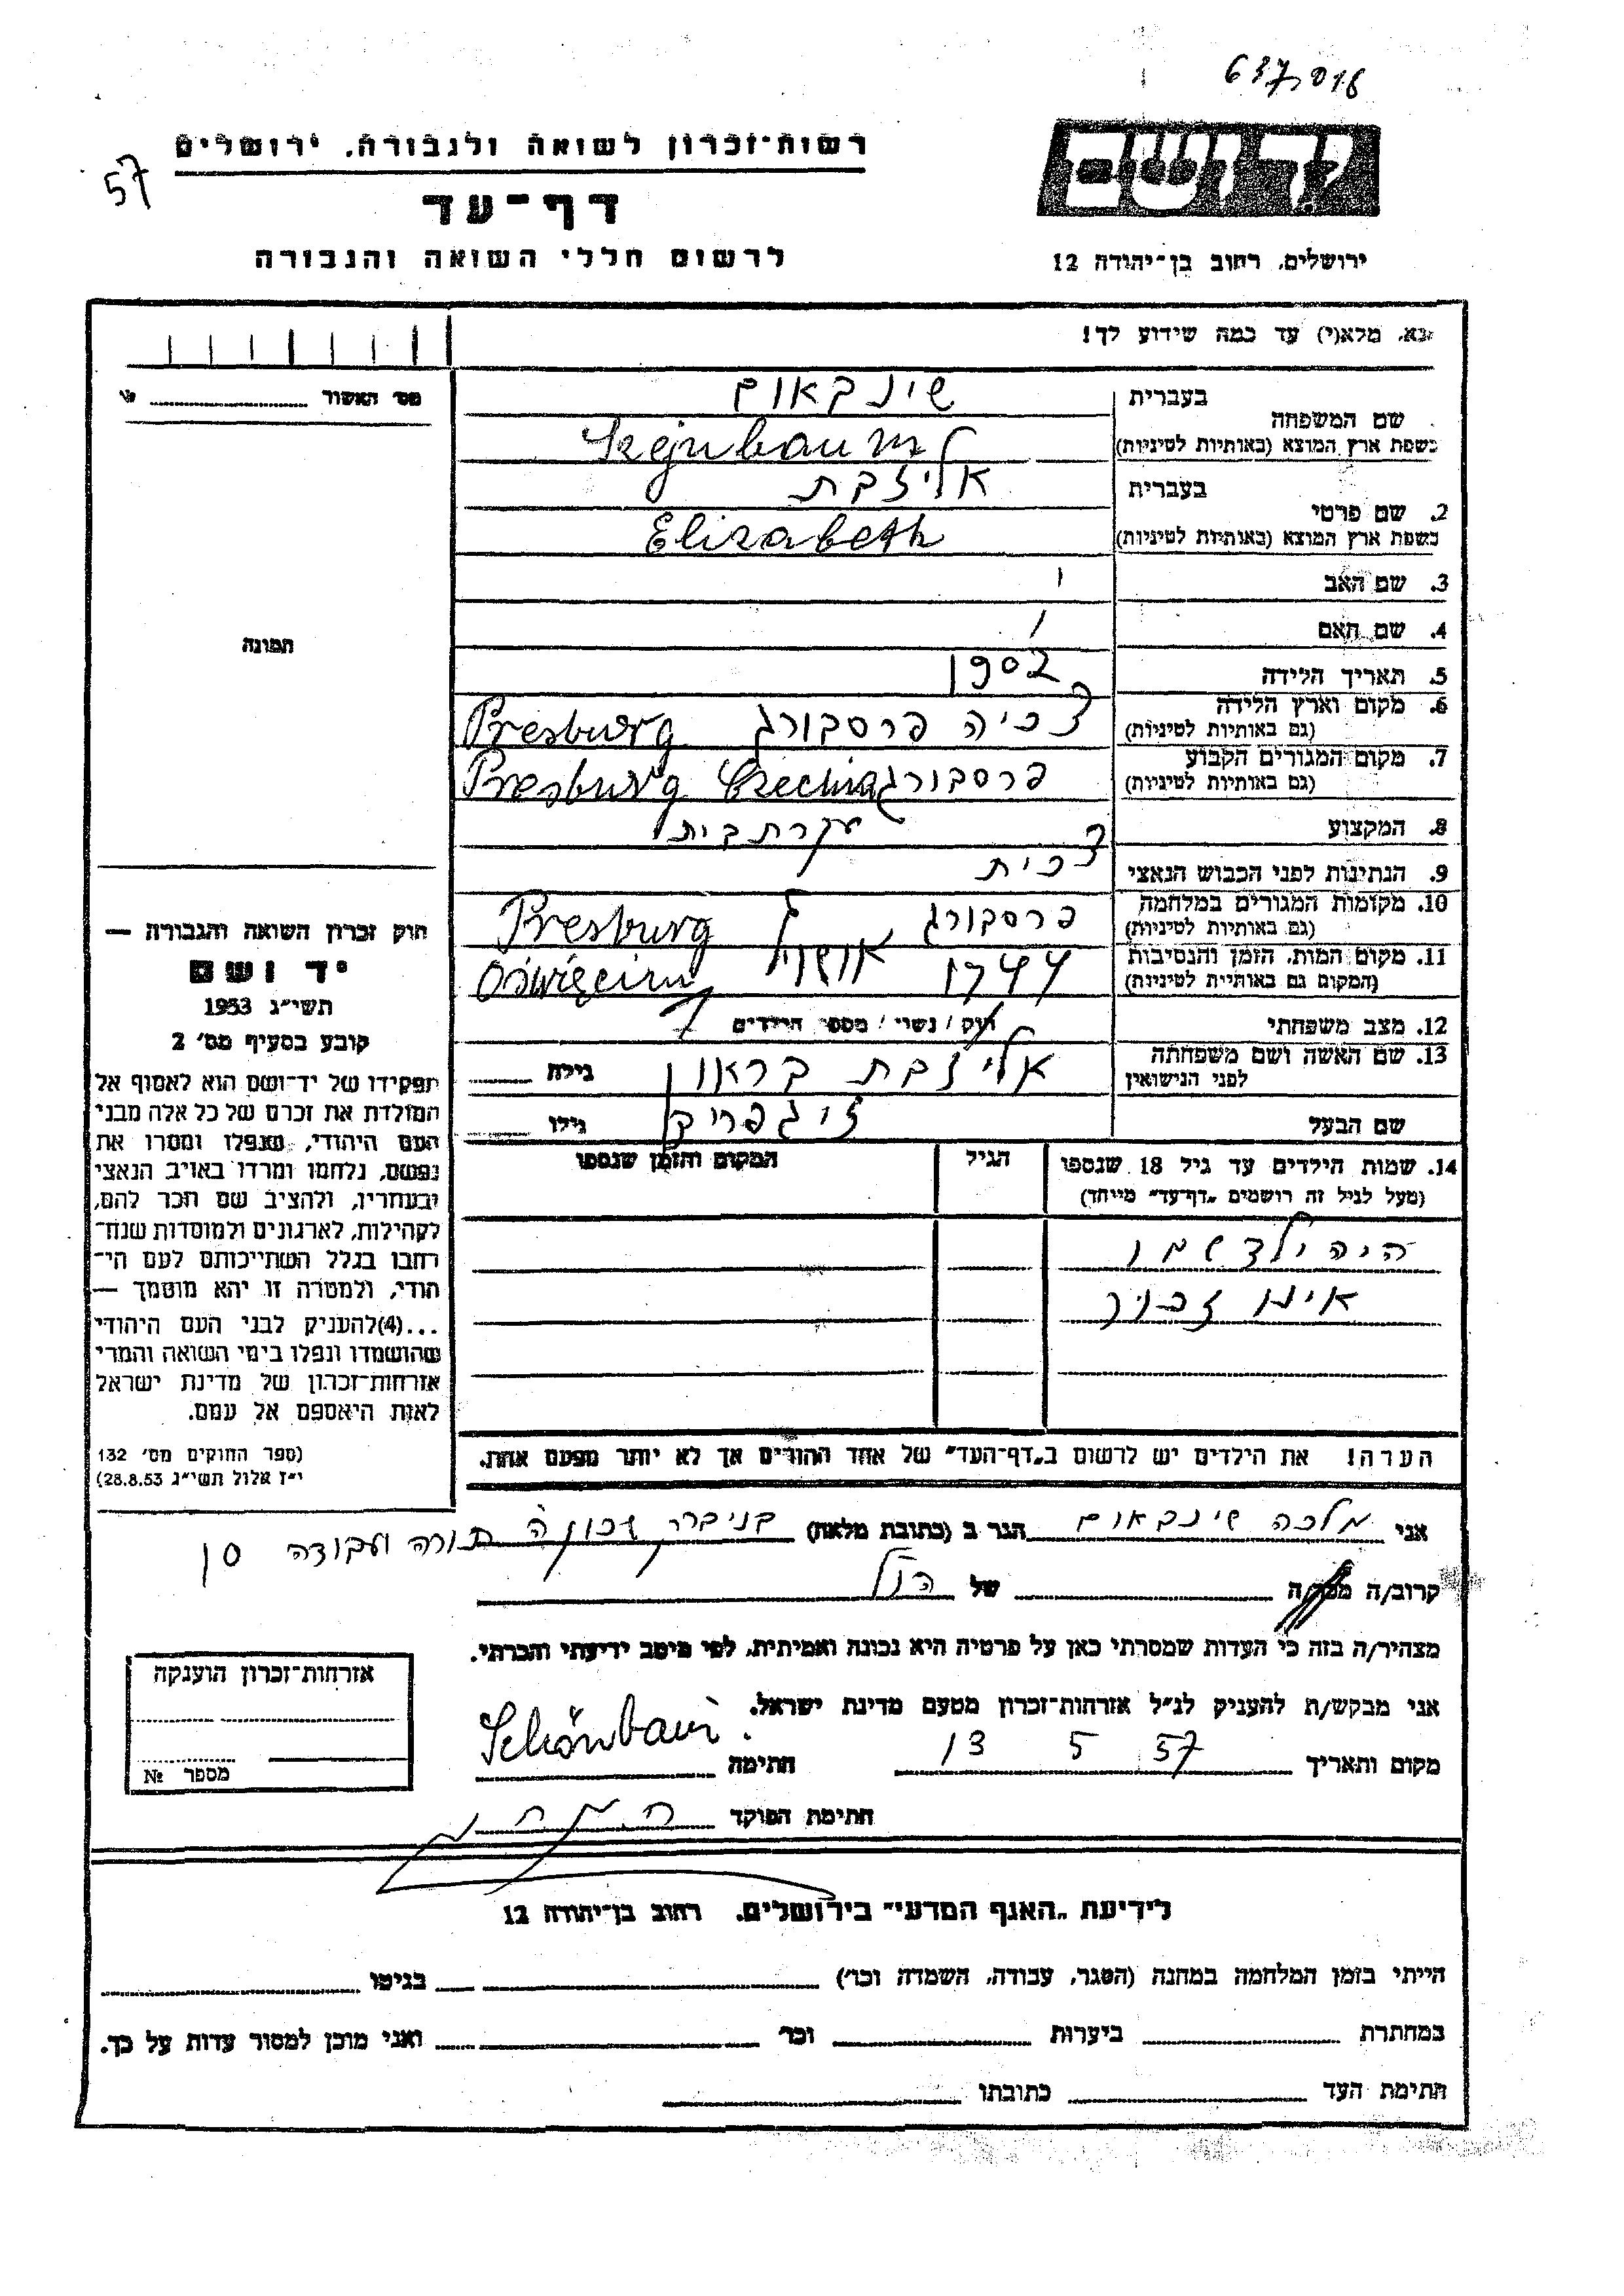 637,018
רשות־זכרון לשואה ולגבורה. ירושלים
57
דף־עד
לרשום חללי השואה והגבורה
יד ושם
ירושלים, רחוב בן־יהודה 12
נא, מלא(י) עד כמה שידוע לך!
מס׳ האשור
שם המשפחה
בעברית
שינבאום
בשפת ארץ המוצא (באותיות לטיניות)
Szejnbaum
2. שם פרטי
בעברית
אליזבת
בשפת ארץ המוצא (באותיות לטיניות)
Elizabeth
3. שם האב
4. שם האם
5. תאריך הלידה
1902
6. מקום וארץ הלידה
(גם באותיות לטיניות)
צכיה פרסבורג Presburg
7. מקום המגורים הקבוע
(גם באותיות לטיניות)
פרסבורג Presburg Czechia
8. המקצוע
עקרת בית
9. הנתינות לפני הכבוש הנאצי
צכית
10. מקומות המגורים במלחמה
(גם באותיות לטיניות)
פרסבורג Presburg
11. מקום המות, הזמן והנסיבות
(המקום גם באותיית לטיניות)
1944 Oświęcim
12. מצב משפחתי
רוק / נשוי / מספר הילדים 1
13. שם האשה ושם משפחתה
לפני הנישואין
אליזבת בראון
גילה
שם הבעל
זיגפריד
גילו
14. שמות הילדים עד גיל 18 שנספו
(מעל לגיל זה רושמים „דף־עד״ מייחד)
הגיל
המקום והזמן שנספו
היה ילד שמו
אינו זכור
הערה! את הילדים יש לרשום ב„דף־העד״ של אחד ההורים אך לא יותר מפעם אחת.
תמונה
חוק זכרון השואה והגבורה —
יד ושם
תשי״ג 1953
קובע בסעיף מס׳ 2
תפקידו של יד־ושם הוא לאסוף אל
המולדת את זכרם של כל אלה מבני
העם היהודי, שנפלו ומסרו את
נפשם, נלחמו ומרדו באויב הנאצי
ובעוזריו, ולהציב שם וזכר להם,
לקהילות, לארגונים ולמוסדות שנח־
רחבו בגלל השתייכותם לעם הי־
הודי, ולמטרה זו יהא מוסמך —
...(4)להעניק לבני העם היהודי
שהושמדו ונפלו בימי השואה והמרי
אזרחות־זכרון של מדינת ישראל
לאות היאספם אל עמם.
(ספר החוקים מס׳ 132
י״ז אלול תשי״ג 28.8.53)
אני מלכה שינבאום הגר ב (כתובת מלאה) בני ברק שכונה תורה ועבודה 10
קרוב/ה של הנ״ל
מצהיר/ה בזה כי העדות שמסרתי כאן על פרטיה היא נכונה ואמיתית, לפי מיטב ידיעתי והכרתי.
אני מבקש/ת להעניק לנ״ל אזרחות־זכרון מטעם מדינת ישראל.
מקום ותאריך 13 5 57 חתימה Schönbaum
חתימת הפוקד
אזרחות־זכרון הוענקה
מספר №
לידיעת „האגף המדעי״ בירושלים. רחוב בן־יהודה 12
הייתי בזמן המלחמה במחנה (הסגר, עבודה, השמדה וכו׳) בגיטו
במחתרת ביערות וכו׳ ואני מוכן למסור עדות על כך.
חתימת העד כתובתו